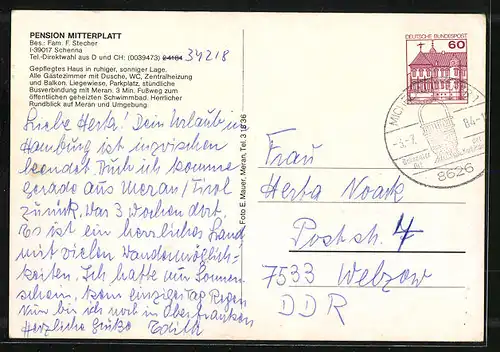 PENSION MITTERPLATT
Bes.: Fam. F. Stecher
I-39017 Schenna
Tel.-Direktwahl aus D und CH: (0039473) 34218
Gepflegtes Haus in ruhiger, sonniger Lage.
Alle Gästezimmer mit Dusche, WC, Zentralheizung
und Balkon. Liegewiese, Parkplatz, stündliche
Busverbindung mit Meran. 3 Min. Fußweg zum
öffentlichen geheizten Schwimmbad. Herrlicher
Rundblick auf Meran und Umgebung.
Liebe Herta! Dein Urlaub in
Hamburg ist inzwischen
beendet. Auch ich komme
gerade aus Meran/Tirol
zurück. War 3 Wochen dort.
Es ist ein herrliches Land
mit vielen Wandermöglich-
keiten. Ich hatte nur Sonnen-
schein, kein einziger Tag Regen
Nun bin ich noch in Oberfranken
Herzliche Grüße Edith
Foto E. Mauer, Meran, Tel. 3 18 36
DEUTSCHE BUNDESPOST
60
8626
Frau
Herta Noack
Poststr. 4
7533 Welzow
DDR